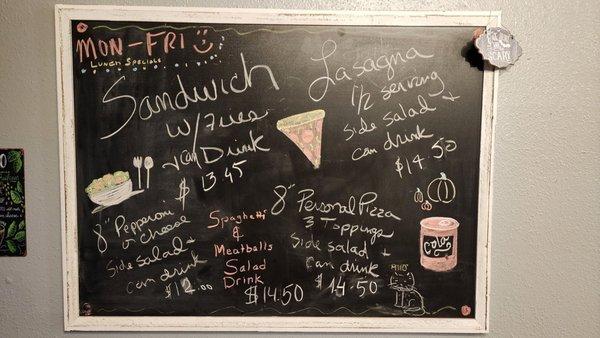 MON-FRI
LUNCH SPECIALS
Sandwich
w/ Fries
+ can Drink
$ 13.45
Lasagna
1/2 serving
side salad +
can drink
$14.50
8" Pepperoni
or cheese
side salad +
can drink
$12.00
Spaghetti
&
Meatballs
Salad
Drink
$14.50
8" Personal Pizza
3 Toppings
side salad +
can drink
$14.50
SCARY